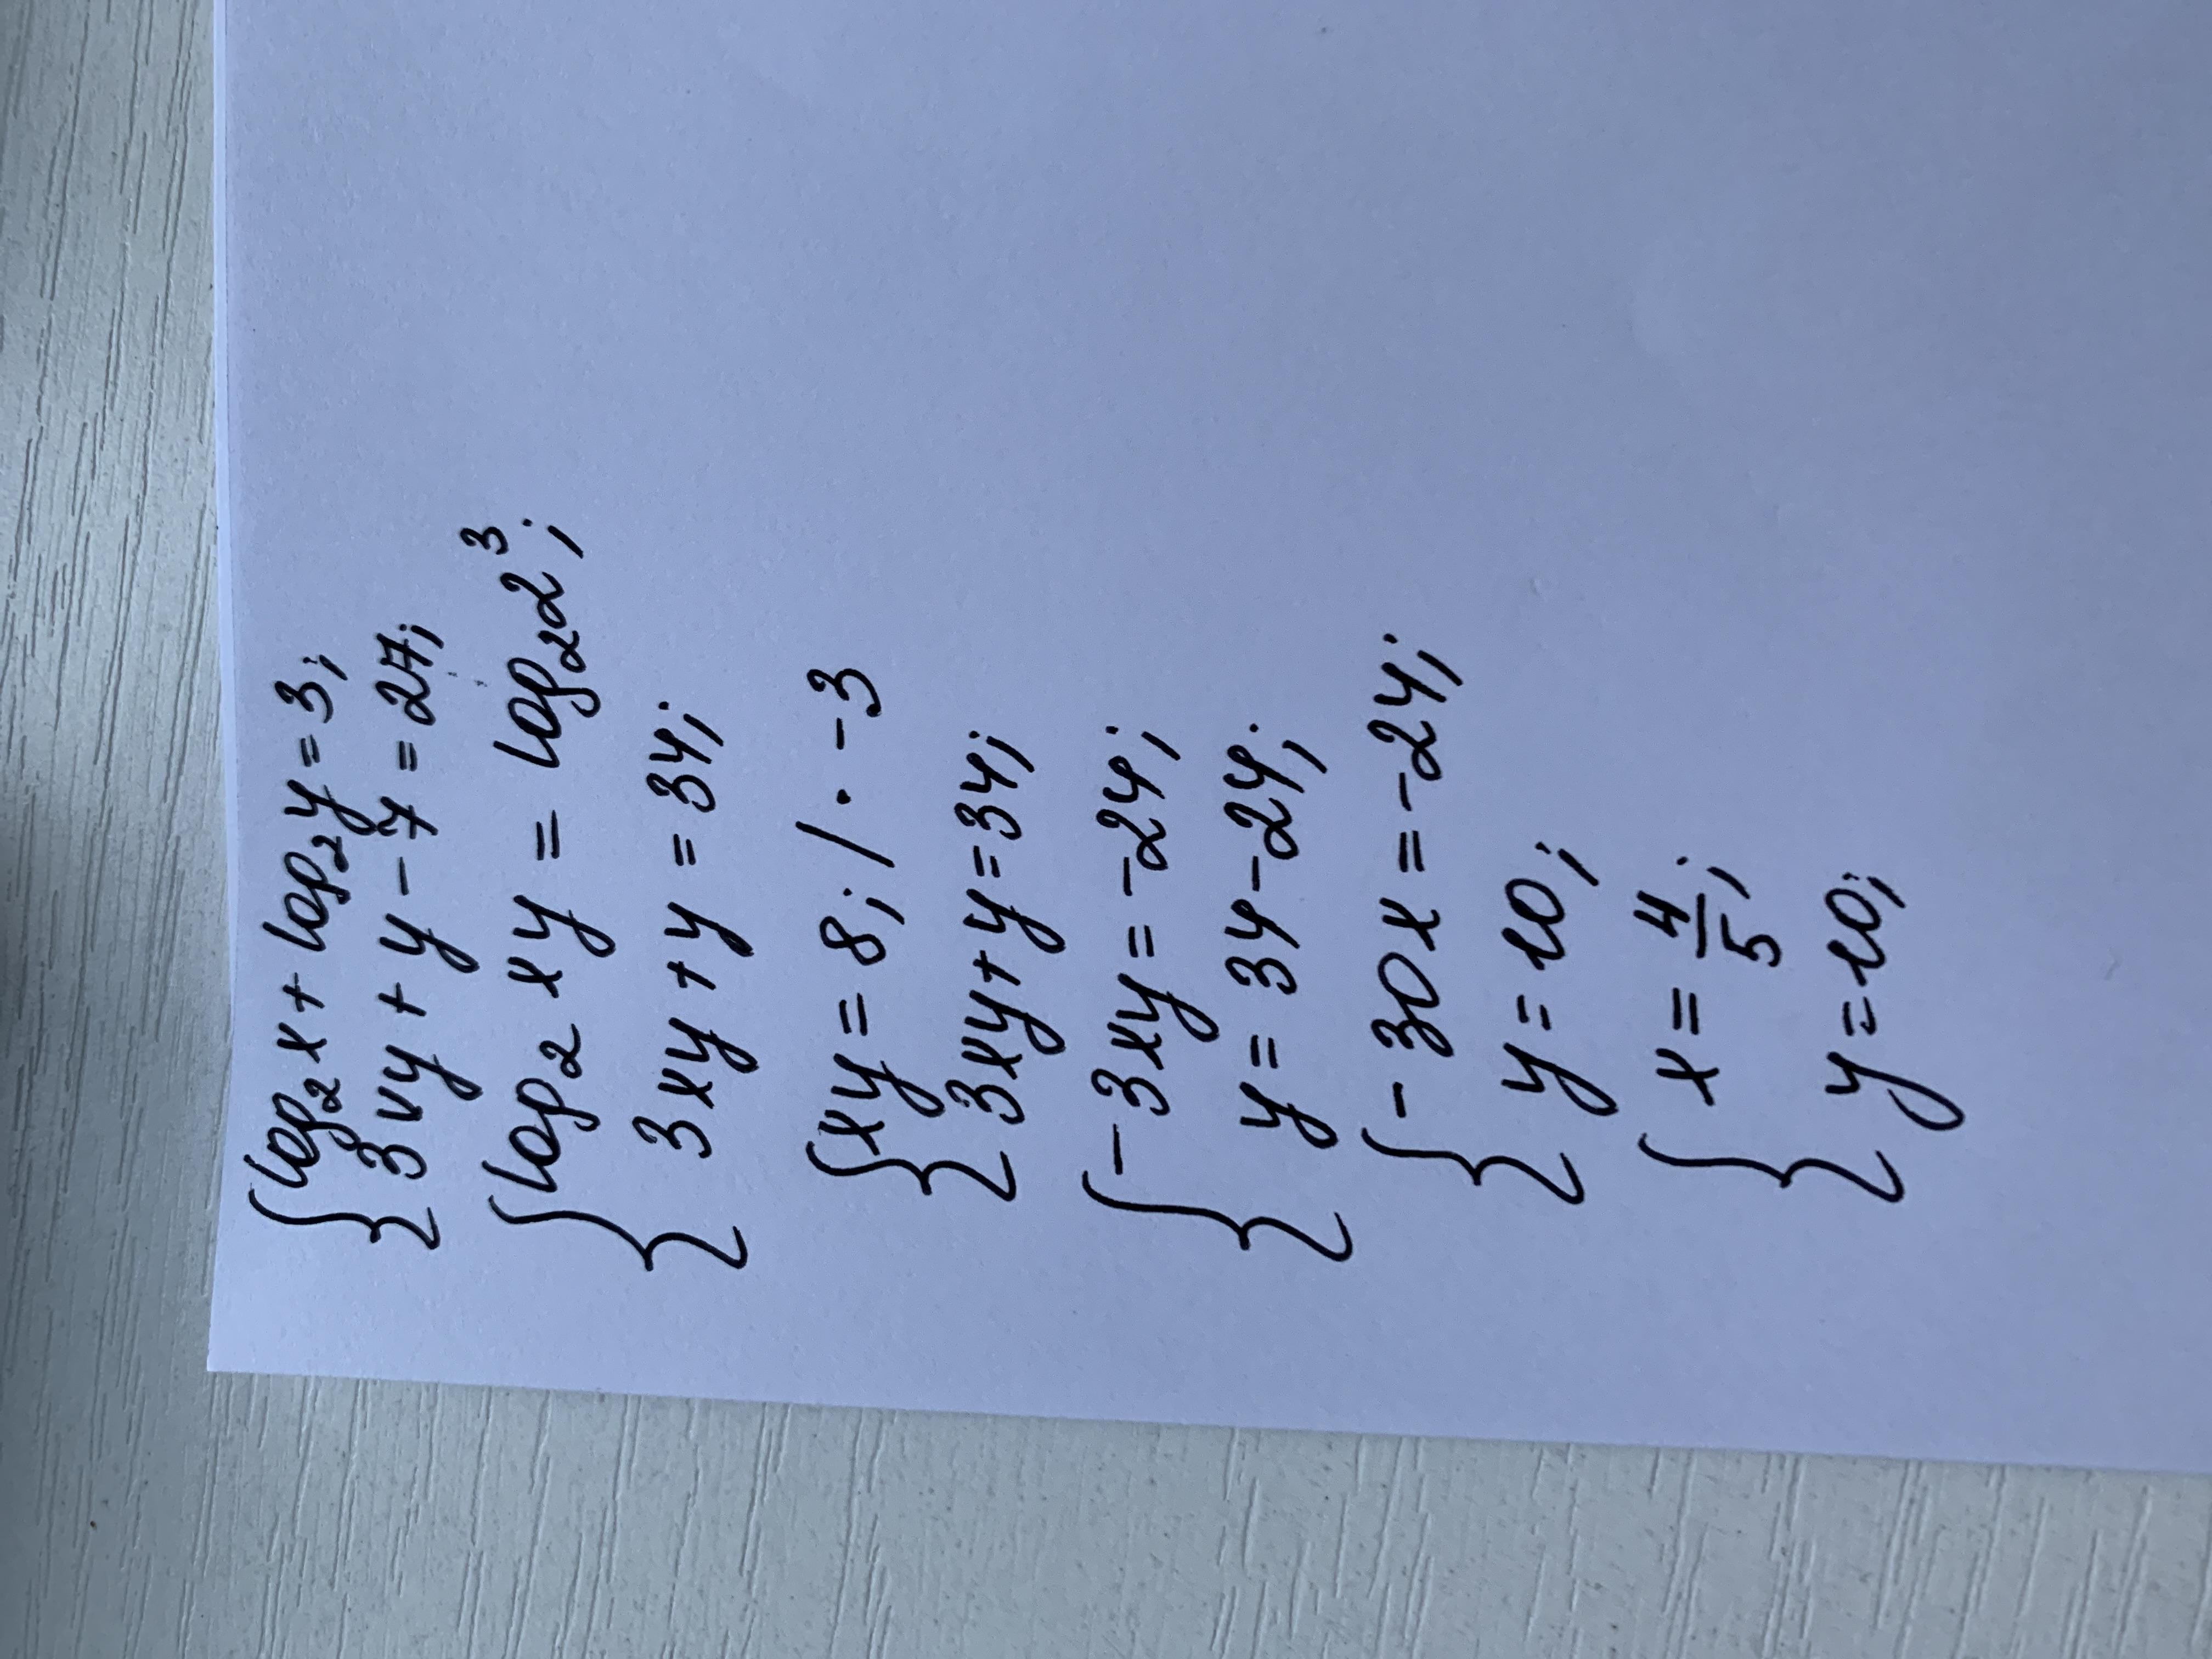 {log₂x + log₂y = 3;
3xy + y - 7 = 27;
{log₂ xy = log₂2³;
3xy + y = 34;
{xy = 8; / · -3
3xy + y = 34;
{-3xy = -24;
y = 34 - 24;
{-30x = -24;
y = 10;
{x = 4/5;
y = 10;